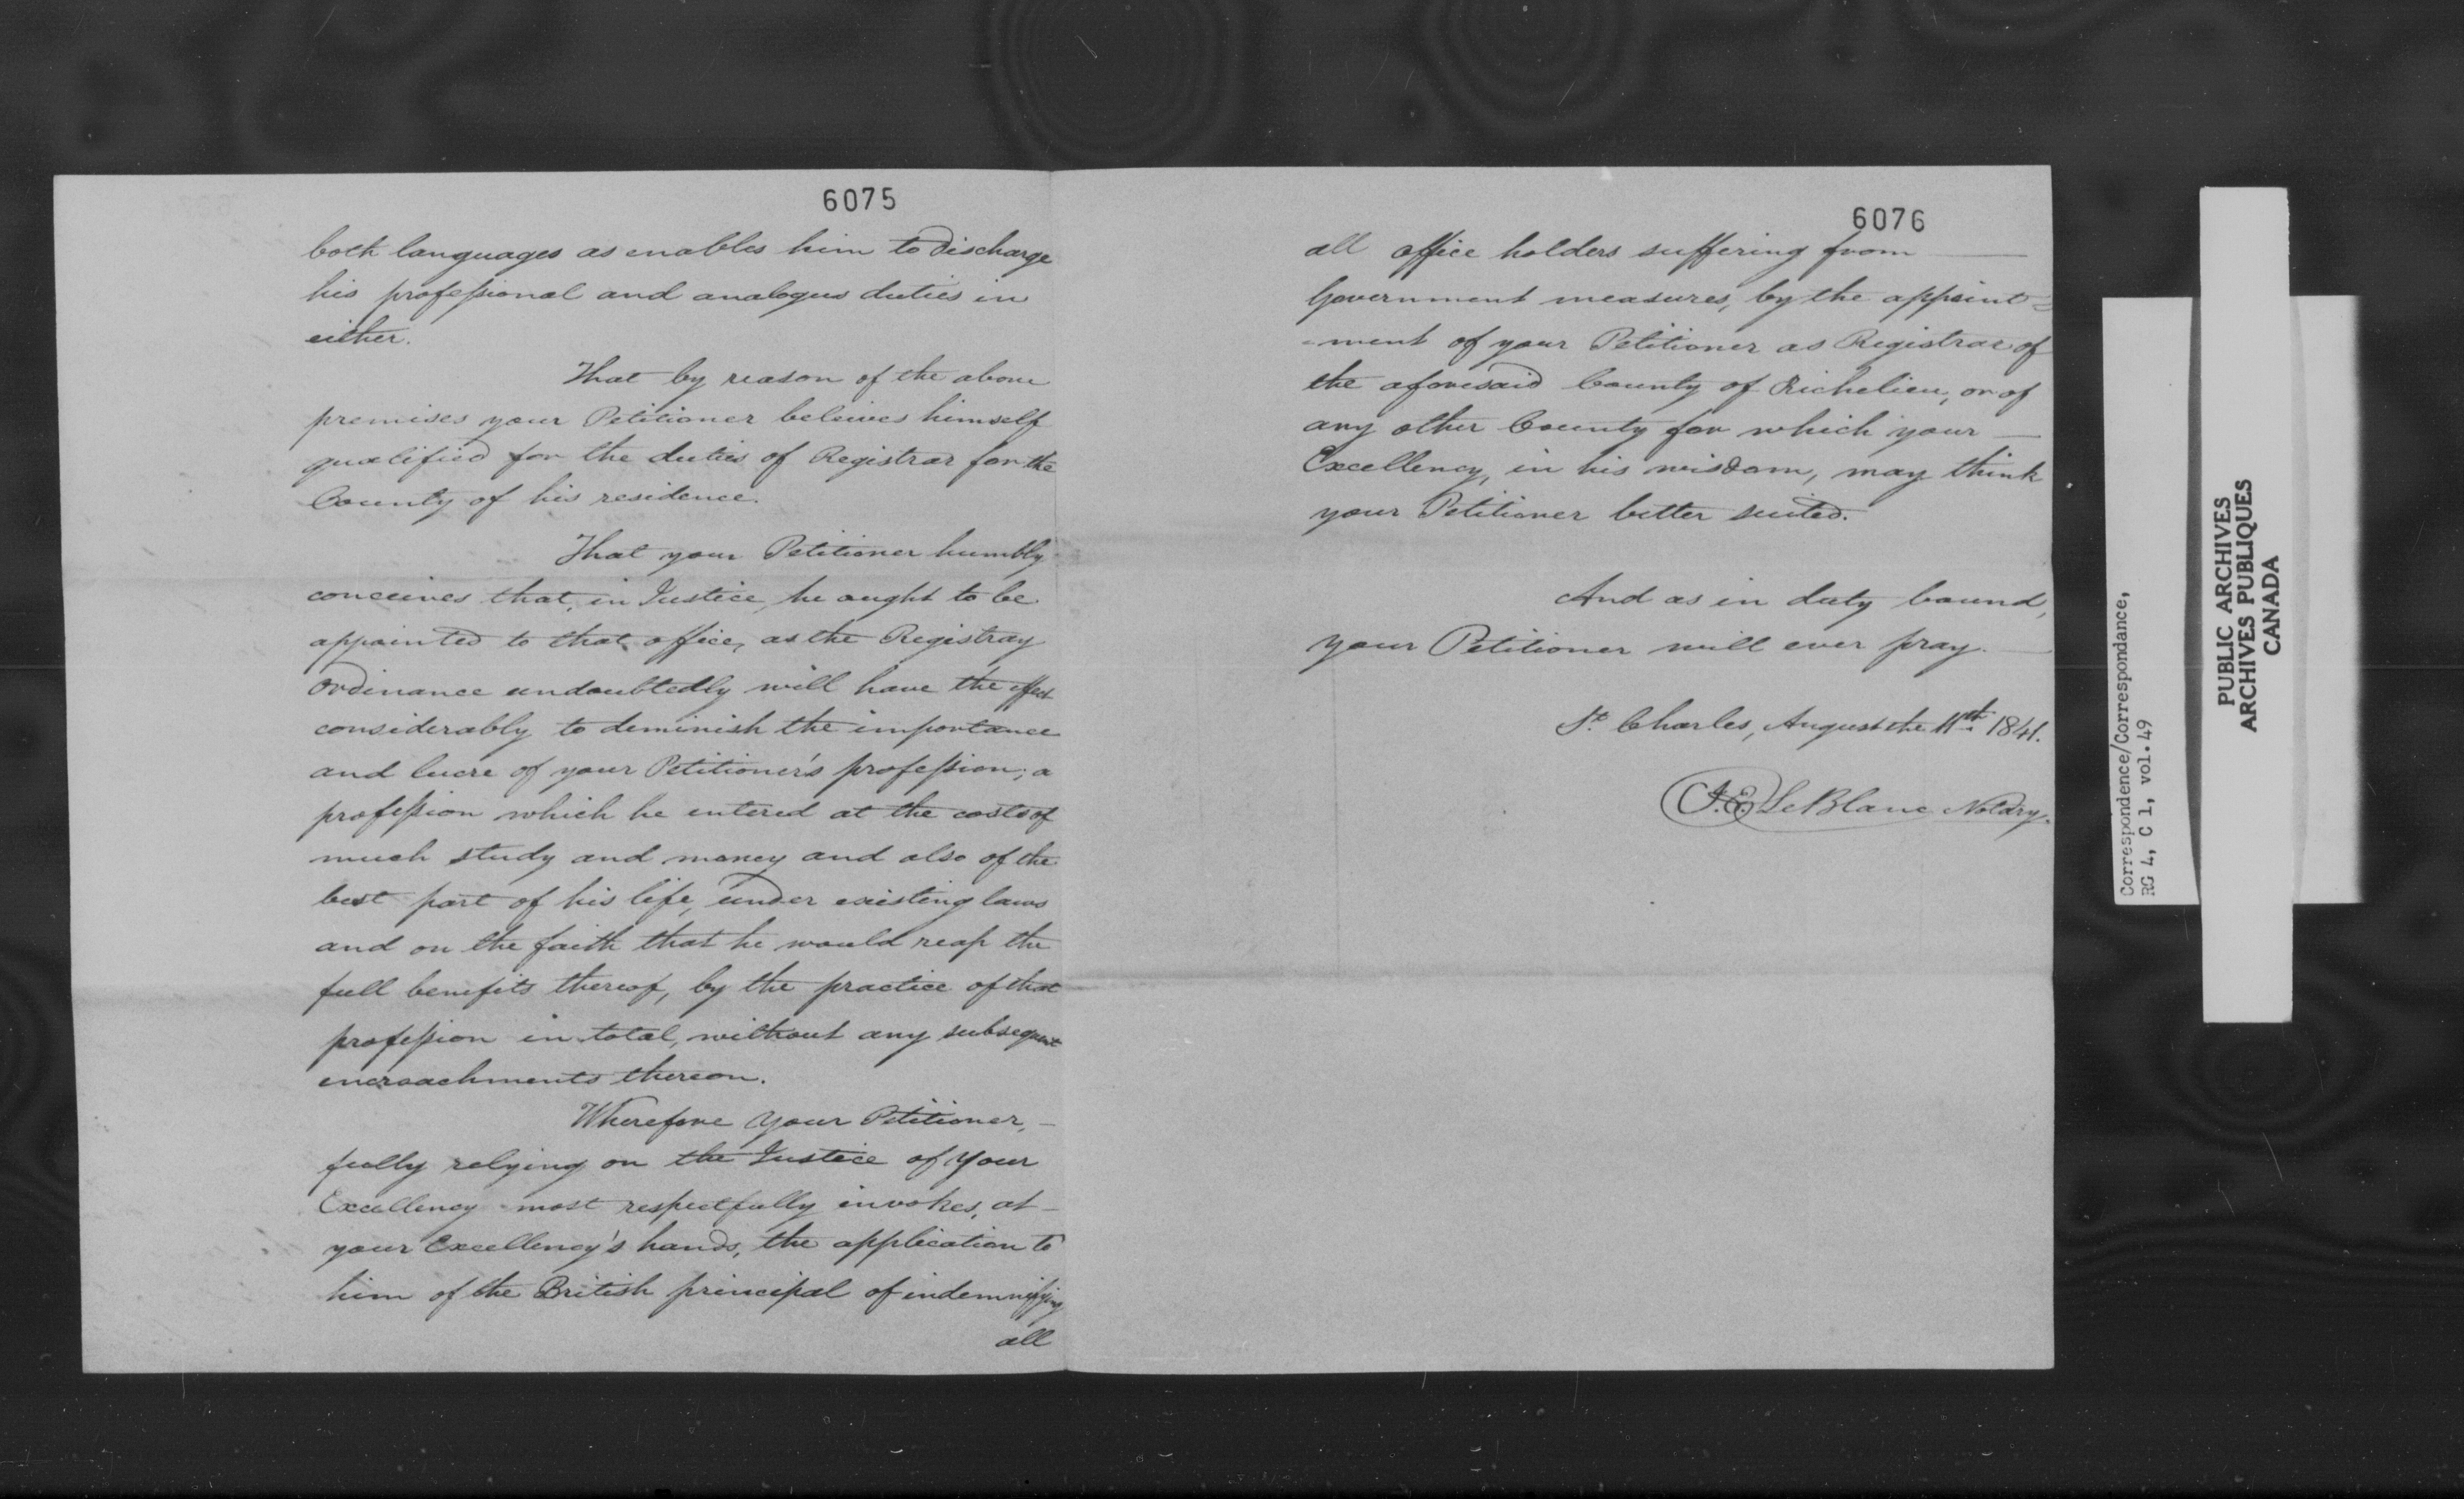 6075
both languages as enables him to discharge
his professional and analogus duties in
either.
That by reason of the above
premises your Petitioner beleives himself
qualified for the duties of Registrar for the
County of his residence.
That your Petitioner humbly
conceives that, in Justice, he ought to be
appointed to that office, as the Registray
Ordinance undoubtedly will have the effect
considerably to deminish the importance
and lucre of your Petitioner's profession; a
profession which he entered at the costs of
much study and money and also of the
best part of his life, under existing laws
and on the faith that he would reap the
full benefits thereof, by the practice of that
profession in total, without any subsequent
encroachments thereon.
Wherefore Your Petitioner, –
fully relying on the Justice of Your
Excellency most respectfully invokes, at –
your Excellency's hands, the application to
him of the British principal of indemnifying
all
6076
all office holders suffering from —
Government measures, by the appoint=
=ment of your Petitioner as Registrar of
the aforesaid County of Richelieu, or of
any other County for which your —
Excellency, in his wisdom, may think
your Petitioner better suited.
And as in duty bound,
your Petitioner will ever pray. —
St. Charles, August the 11th 1841.
J. E. LeBlanc Notary.
Correspondence/Correspondance,
RG 4, C 1, vol. 49
PUBLIC ARCHIVES
ARCHIVES PUBLIQUES
CANADA